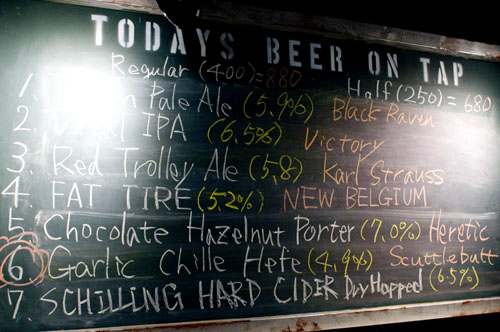 TODAYS BEER ON TAP
Regular (400)=880 Half(250)=680
1. Pale Ale (5.9%) Black Raven
2. IPA (6.5%) Victory
3. Red Trolley Ale (5,8) Karl Strauss
4. FAT TIRE (5.2%) NEW BELGIUM
5. Chocolate Hazelnut Porter (7.0%) Heretic
6 Garlic Chille Hefe (4.9%) Scuttlebutt
7. SCHILLING HARD CIDER Dry Hopped (6.5%)